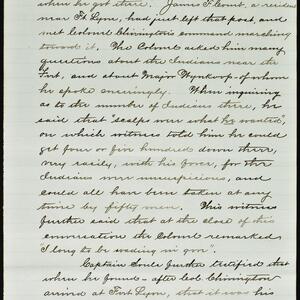 when he got there. James F. Combs, a resident
near Ft Lyon, had just left that post, and
met Colonel Chivington's command marching
toward it. The Colonel asked him many
questions about the Indians near the
Fort, and about Major Wynkoop, of whom
he spoke sneeringly. When inquiring
as to the number of Indians there, he
said that "scalps were what he wanted",
on which witness told him he could
get four or five hundred down there,
very easily, with his force, for the
Indians were unsuspicious, and
could all have been taken at any
time by fifty men. This witness
further said that at the close of this
conversation the Colonel remarked
"I long to be wading in gore".
Captain Soule further testified that
when he found – after Col. Chivington
arrived at Fort Lyon, that it was his